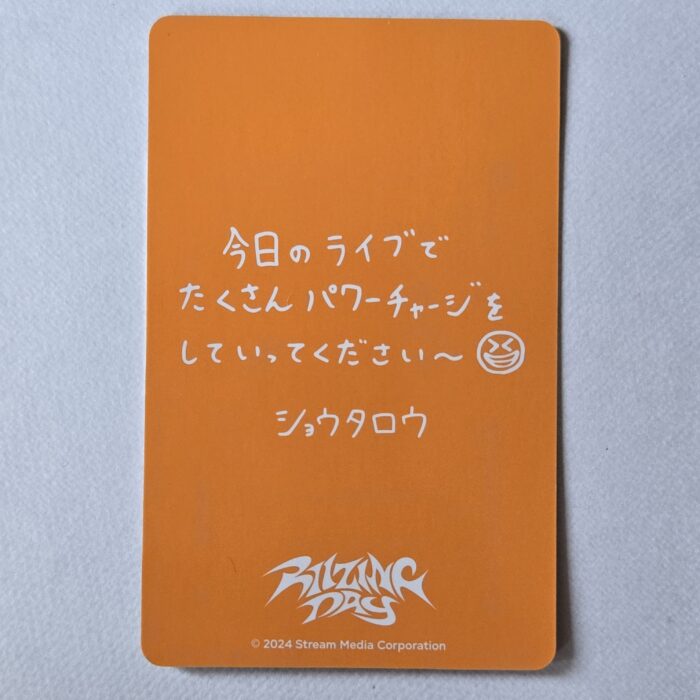 今日のライブで
たくさんパワーチャージを
していってください〜
ショウタロウ
RIIZING
DAY
© 2024 Stream Media Corporation